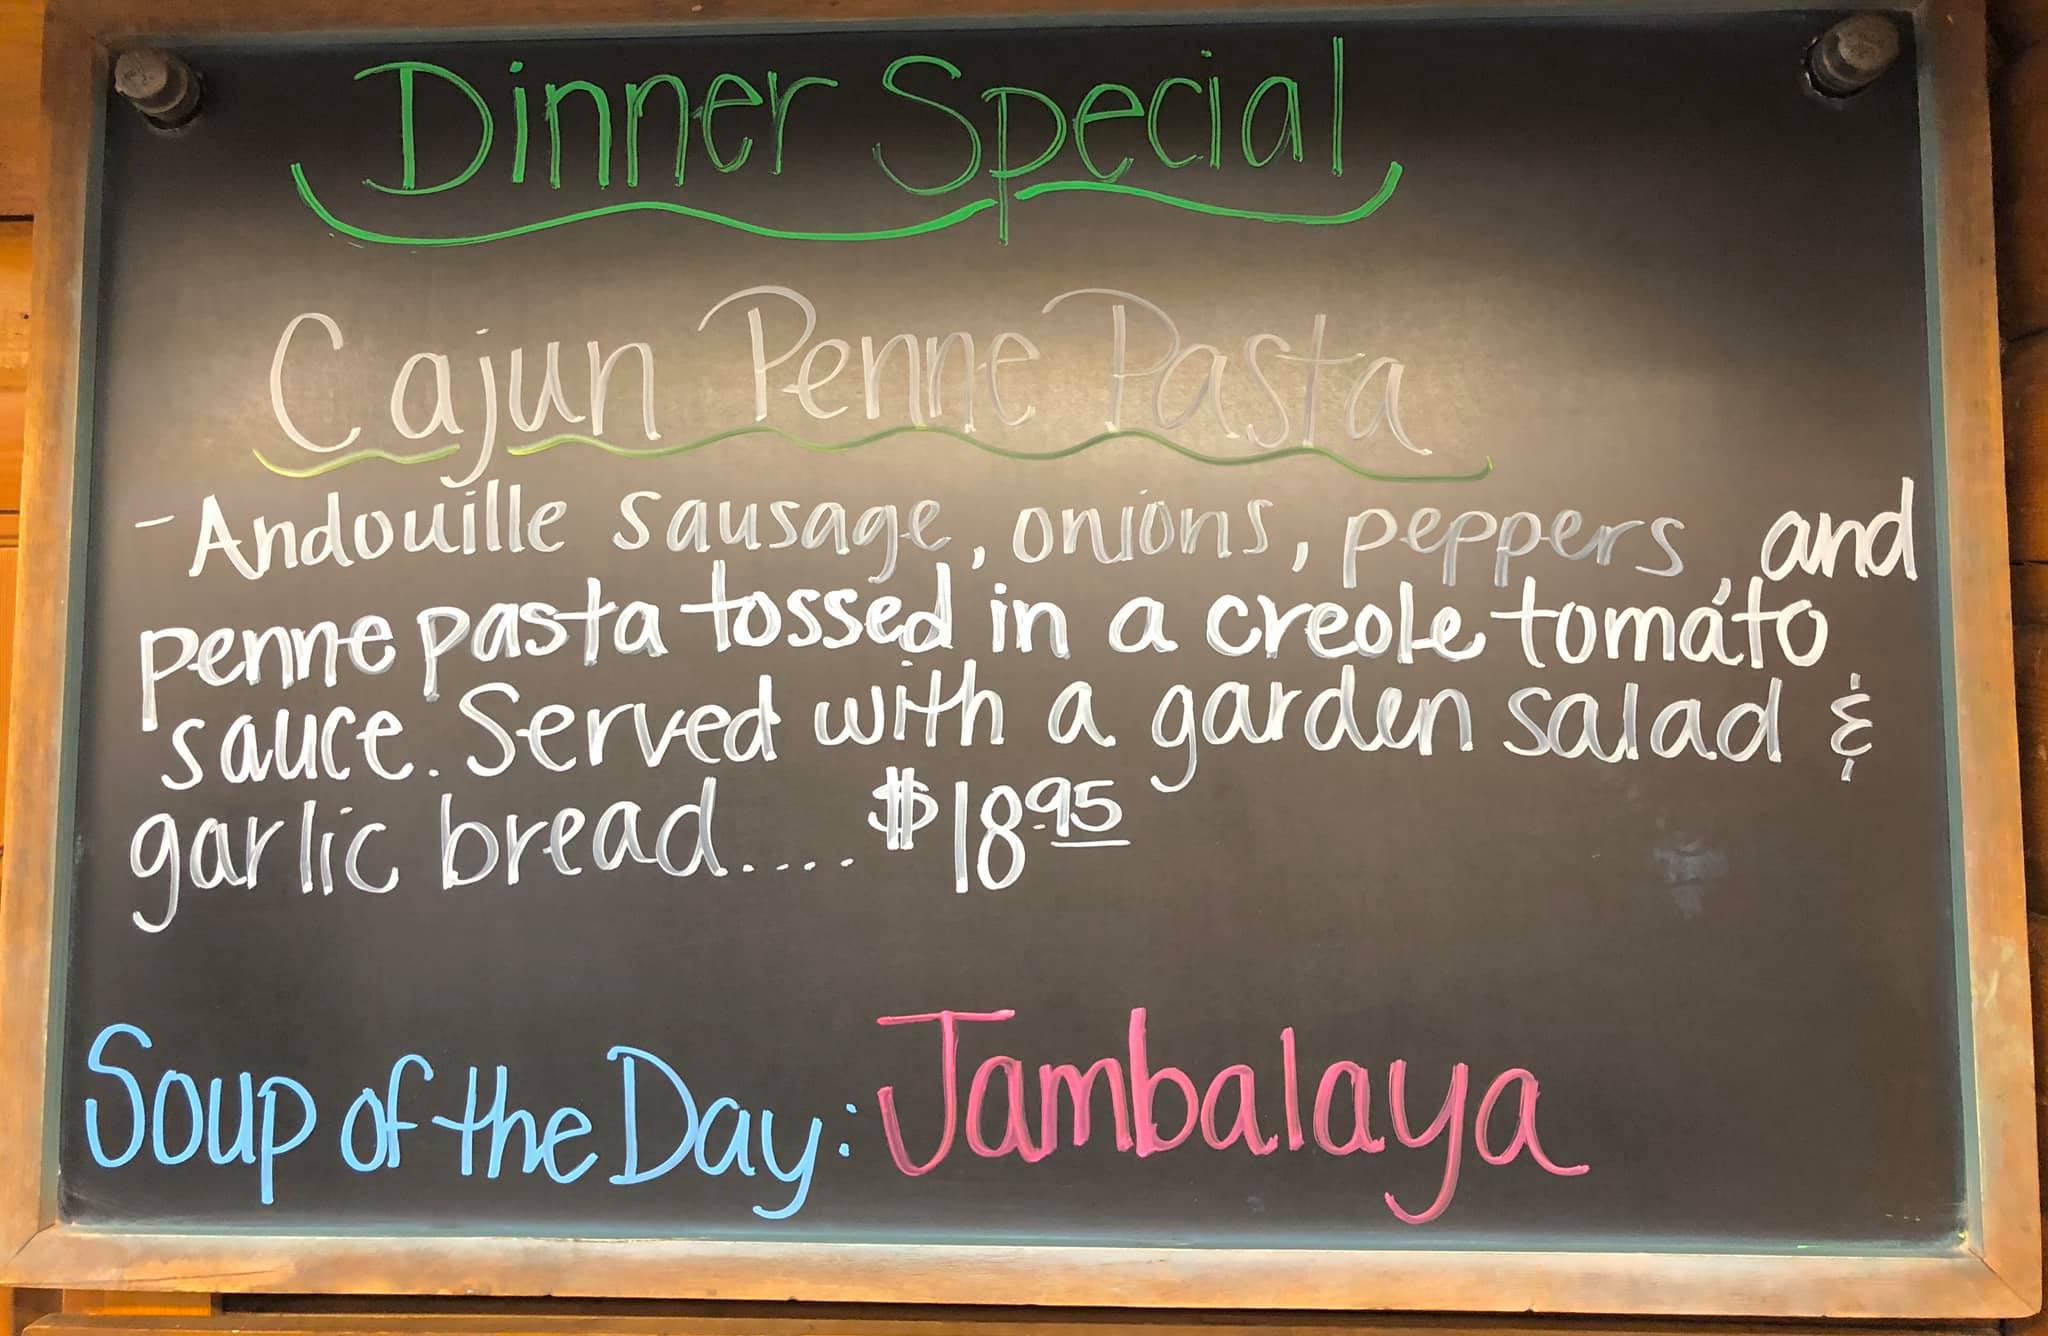 Dinner Special
Cajun Penne Pasta
- Andouille sausage, onions, peppers, and
penne pasta tossed in a creole tomato
sauce. Served with a garden salad &
garlic bread.... $18.95
Soup of the Day: Jambalaya